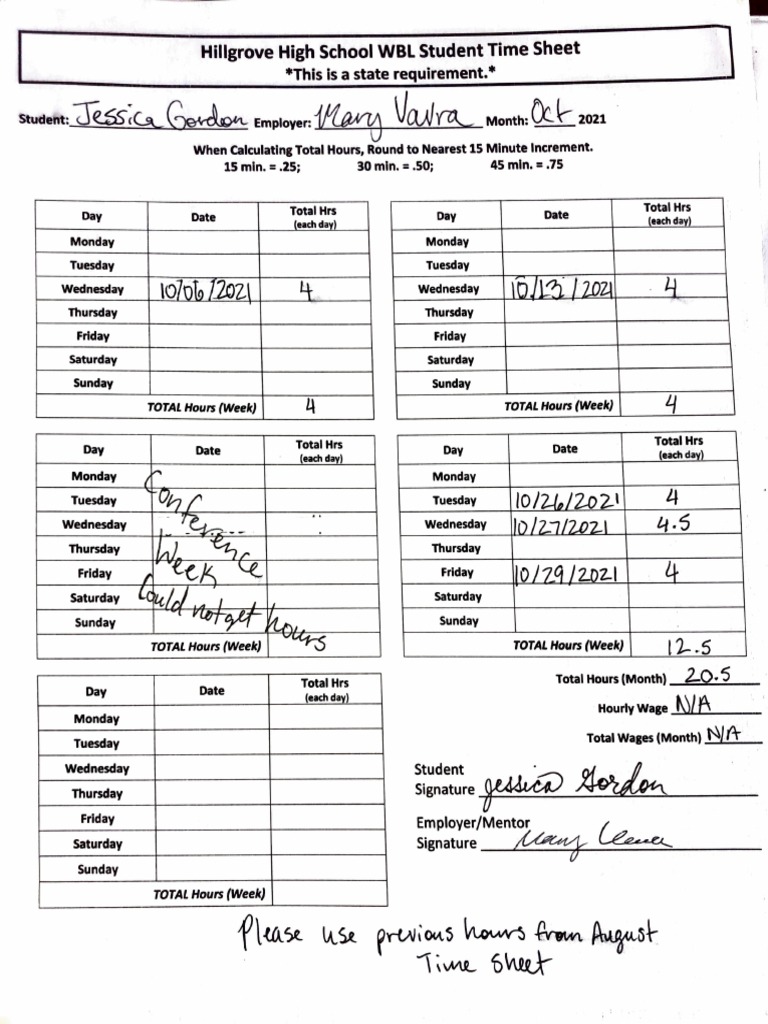 Hillgrove High School WBL Student Time Sheet
*This is a state requirement.*
Student: Jessica Gordon Employer: Mary Vavra Month: Oct 2021
When Calculating Total Hours, Round to Nearest 15 Minute Increment.
15 min. = .25; 30 min. = .50; 45 min. = .75
Day Date Total Hrs (each day)
Monday
Tuesday
Wednesday 10/06/2021 4
Thursday
Friday
Saturday
Sunday
TOTAL Hours (Week) 4
Day Date Total Hrs (each day)
Monday
Tuesday
Wednesday 10/13/2021 4
Thursday
Friday
Saturday
Sunday
TOTAL Hours (Week) 4
Day Date Total Hrs (each day)
Monday
Tuesday
Wednesday
Thursday
Friday
Saturday
Sunday
Conference
Week
Could not get hours
TOTAL Hours (Week)
Day Date Total Hrs (each day)
Monday
Tuesday 10/26/2021 4
Wednesday 10/27/2021 4.5
Thursday
Friday 10/29/2021 4
Saturday
Sunday
TOTAL Hours (Week) 12.5
Day Date Total Hrs (each day)
Monday
Tuesday
Wednesday
Thursday
Friday
Saturday
Sunday
TOTAL Hours (Week)
Total Hours (Month) 20.5
Hourly Wage N/A
Total Wages (Month) N/A
Student
Signature Jessica Gordon
Employer/Mentor
Signature Mary
Please use previous hours from August
Time Sheet